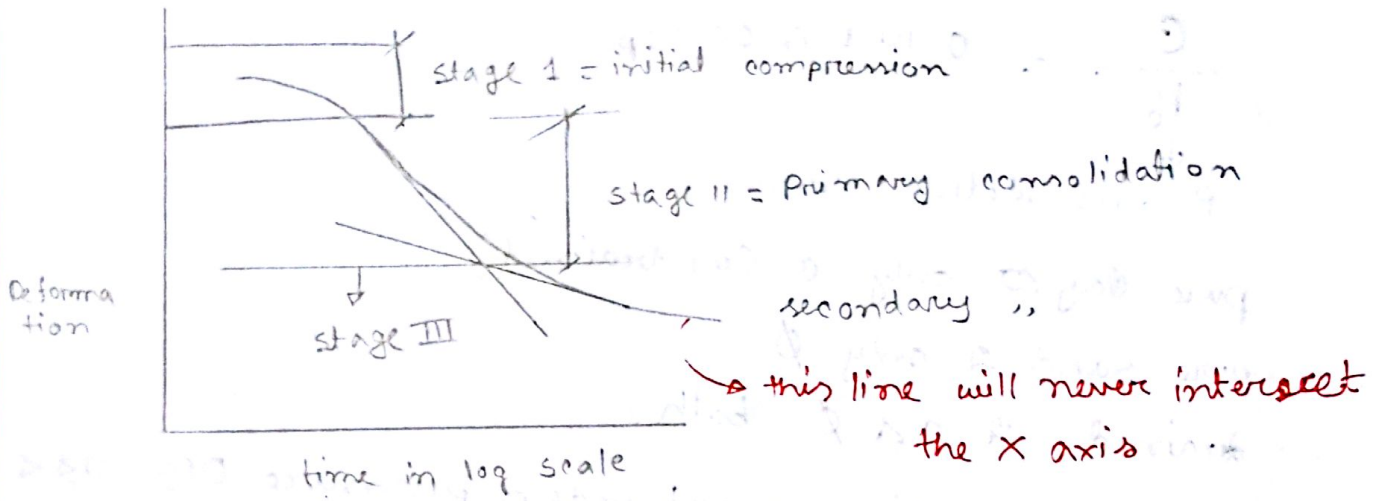 stage 1 = initial compression
stage II = Primary consolidation
Deforma
tion
stage III
secondary ,,
this line will never intersect
the X axis
time in log scale